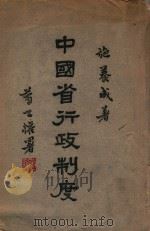 施養成著
中國省行政制度
署